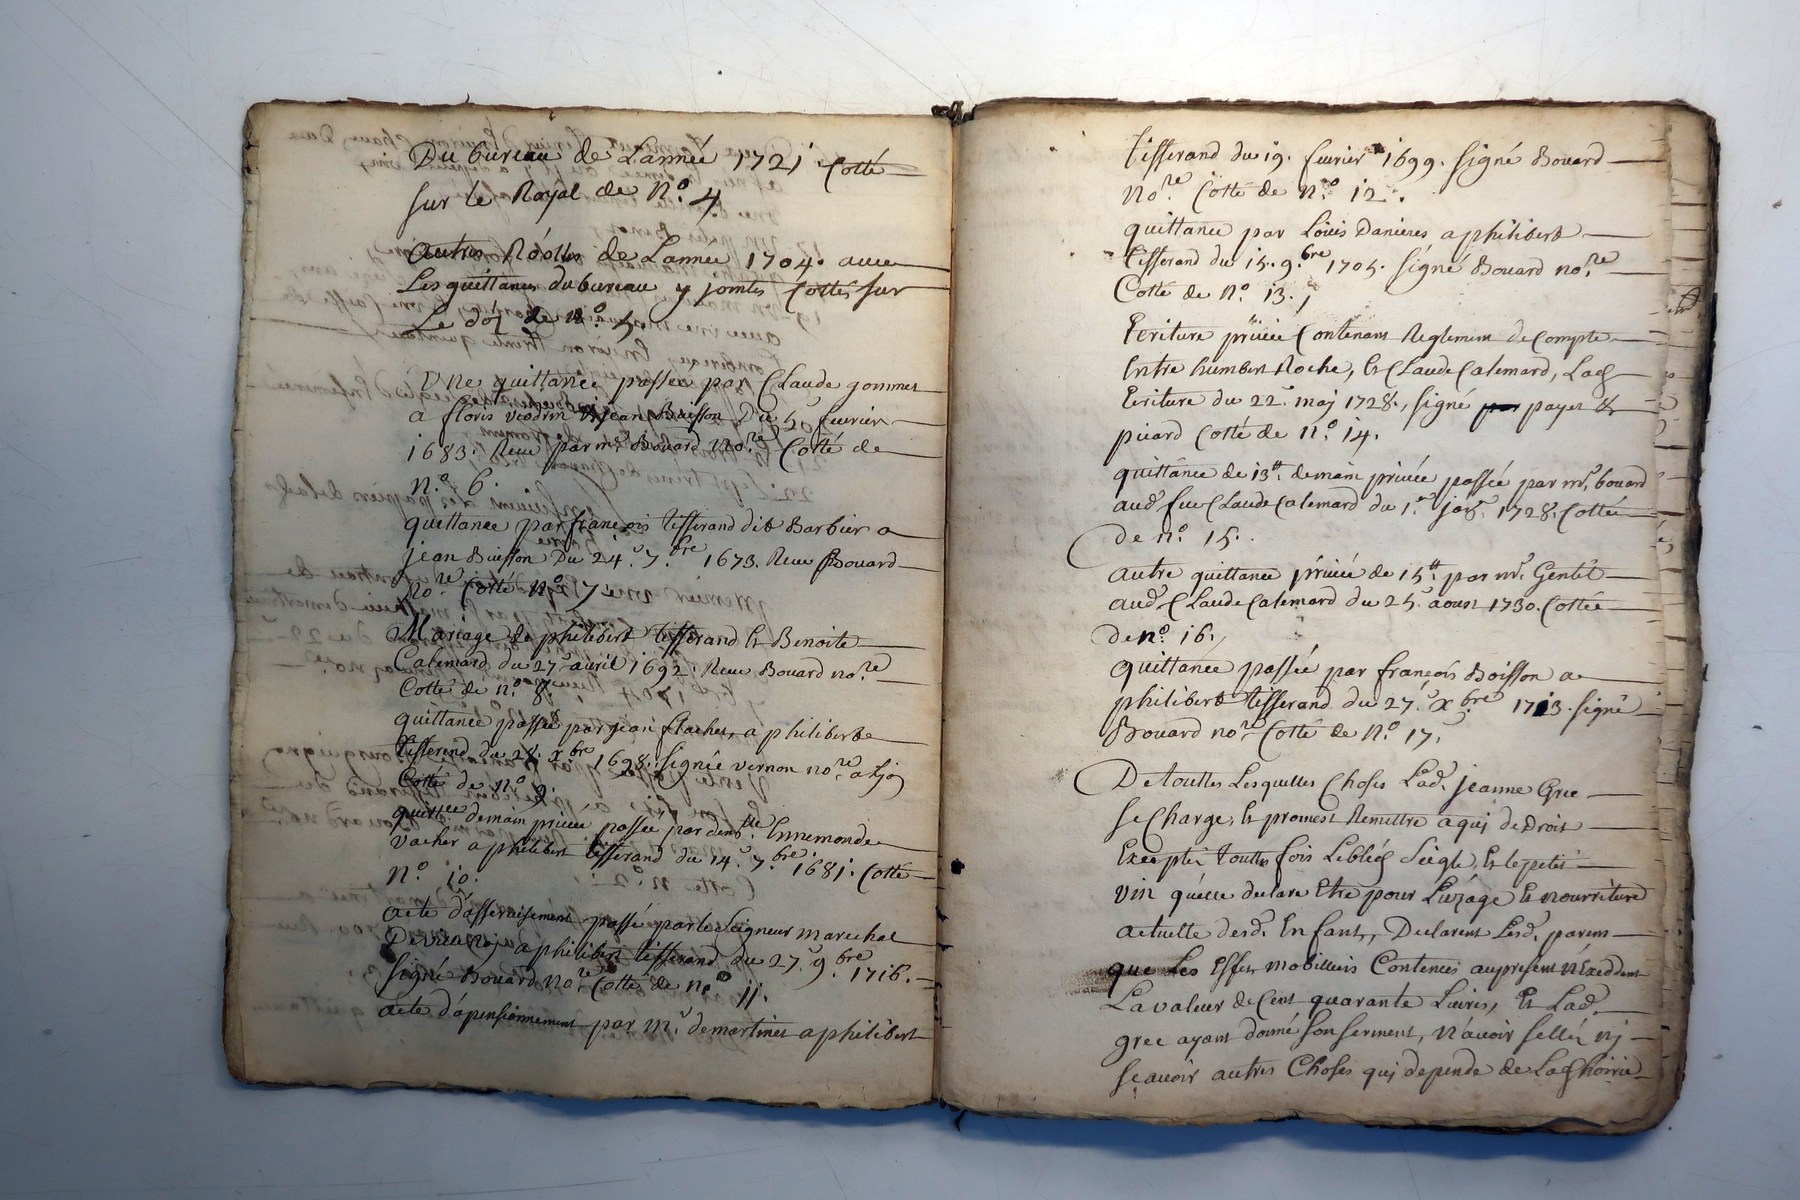 Du bureau de Lannée 1721 Cotté
sur le Royal de N.º 4.
autres Rôolles de Lannee 1704. avec
Les quittances du bureau y jointes Cottés sur
Le d.
Une quittance passée par Claude gommet
a floris jean Buisson Du 5 fevrier
1683. Receu par m.r Bouard No.re Cotté de
N.º 6.
quittance par françois tisserand dit Barbier a
jean Buisson Du 24.e 7.bre 1673. Receu Bouard
No.re Cotté N.º 7.
Mariage de philibert tisserand et Benoite
Calemard du 27.e avril 1692. Receu Bouard no.re
Cotté de n.º 8.
quittance passée par jean flachet, a philibert
tisserand du 28. x.bre 1698. signée vernon no.re a
Cotté de n.º 9.
quitt.ce de main privée passée par Ennemonde
Vacher a philibert tisserand du 14.e 7.bre 1681. Cotté
N.º 10.
acte passé par le Seigneur marechal
De a philibert tisserand du 27.e 9.bre 1716.
signé Bouard No.re Cotté de n.º 11.
acte d'apensionnement par m.r demartinet a philibert
tisserand du 19. fevrier 1699. signé Bouard
No.re Cotté de n.º 12.
quittance par Louis Danieres a philibert
tisserand du 15. 9.bre 1705. signé Bouard no.re
Cotté de N.º 13.
Ecriture privée Contenant Reglement de Compte
Entre humbert Roche, et Claude Calemard, Lad.
Ecriture du 22.e maj 1728., signé payet &
picard Cotté de N.º 14.
quittance de 13.tt de main privée passée par m.r bouard
aud. feu Claude Calemard du 1.er 1728. Cottée
de n.º 15.
autre quittance privée de 15.tt par m.r Gentil
aud. Claude Calemard du 25.e aoust 1730. Cottée
de n.º 16.
Quittance passée par françois Boisson a
philibert tisserand du 27.e x.bre 1713. signé
Bouard no.re Cotté de N.º 17.
De touttes Lesquelles Choses Lad. jeanne Gree
se Charge, et promest Remettre a quj de Droit
Excepté touttes fois Lebled Seigle, et le petit
vin quelle declare Etre pour Luzage et nourriture
actuelle desd. Enfant, Declarent Lesd. parens
que Les Effets mobilliers Contenus au present n'Exeddent
La valeur de Cent quarante Livres, et Lad.
gree ayant donné son serment, n'avoir sellér nj
sçavoir autres Choses quj depende de Lad. hoirie